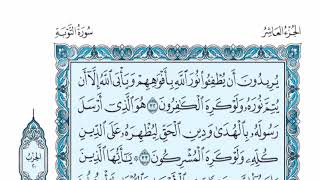 الجزء العاشر
سورة التوبة
يُرِيدُونَ أَن يُطْفِـُٔوا۟ نُورَ ٱللَّهِ بِأَفْوَٰهِهِمْ وَيَأْبَى ٱللَّهُ إِلَّآ أَن
يُتِمَّ نُورَهُۥ وَلَوْ كَرِهَ ٱلْكَٰفِرُونَ ٣٢ هُوَ ٱلَّذِىٓ أَرْسَلَ
رَسُولَهُۥ بِٱلْهُدَىٰ وَدِينِ ٱلْحَقِّ لِيُظْهِرَهُۥ عَلَى ٱلدِّينِ
كُلِّهِۦ وَلَوْ كَرِهَ ٱلْمُشْرِكُونَ ٣٣ يَٰٓأَيُّهَا ٱلَّذِينَ
الحزب